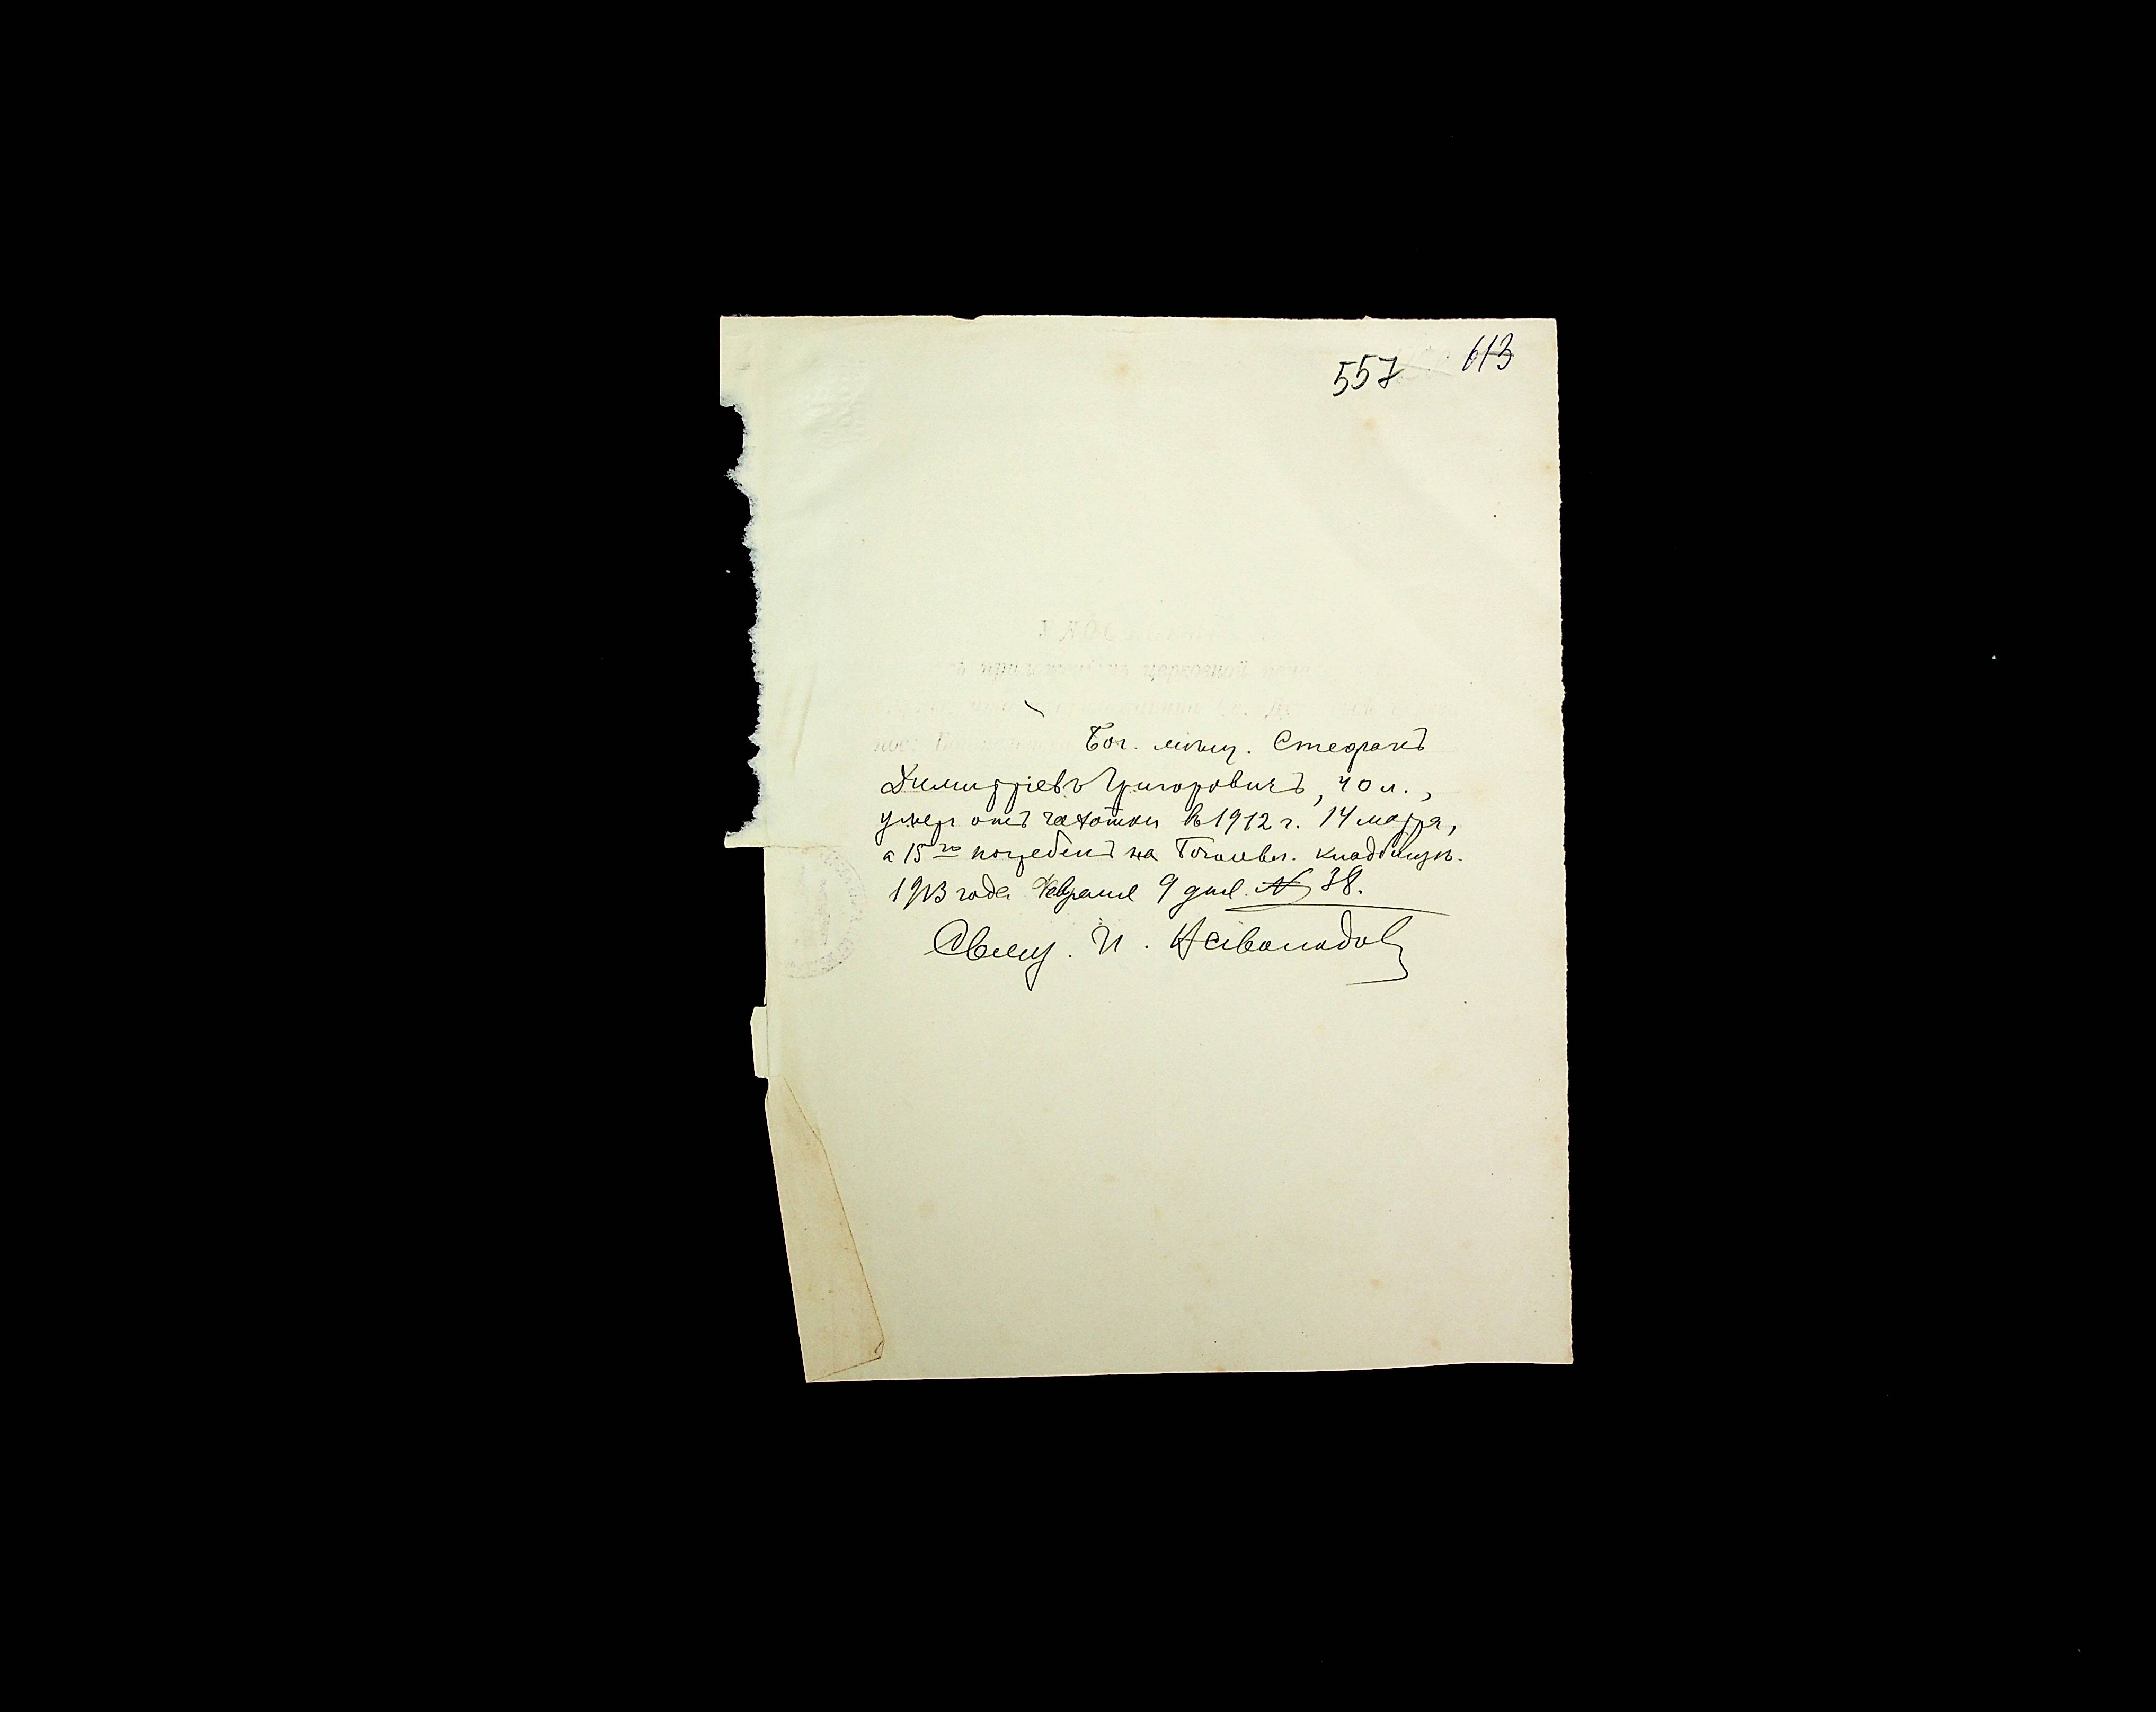 557 613
Бог. мѣщ. Стефанъ
Димитріевъ Григоровичъ, 40 л.,
умер отъ чахотки в 1912 г. 14 марта,
а 15го погребенъ на Гоголев. кладбищѣ.
1913 года Февраля 9 дня. № 38.
Свящ. И.